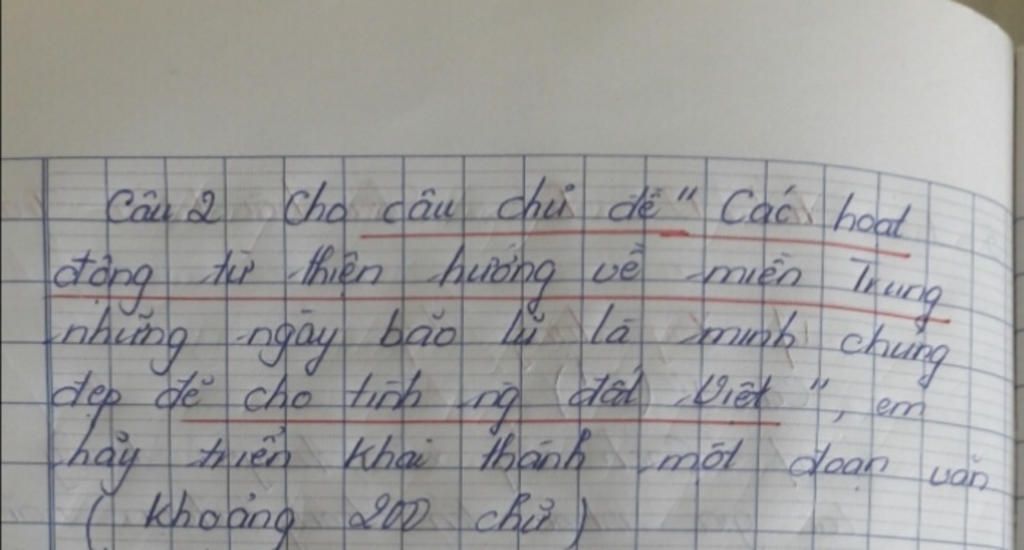 Câu 2 Cho câu chủ đề " Các hoạt
động từ thiện hướng về miền Trung
những ngày bão lũ là minh chứng
đẹp đẽ cho tình ng đất Việt ", em
hãy triển khai thành một đoạn văn
( khoảng 200 chữ )